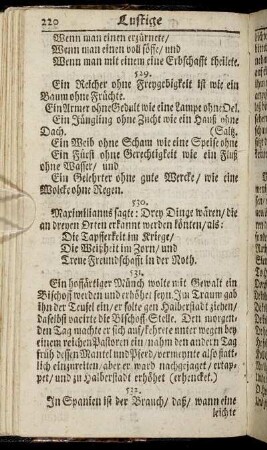 220 Lustige
Wenn man einen erzürnete/
Wenn man einen voll söffe/ und
Wenn man mit einem eine Erbschafft theilete.
529.
Ein Reicher ohne Freygebigkeit ist wie ein
Baum ohne Früchte.
Ein Armer ohne Gedult wie eine Lampe ohne Oel.
Ein Jüngling ohne Zucht wie ein Hauß ohne
Dach. (Saltz.
Ein Weib ohne Scham wie eine Speise ohne
Ein Fürst ohne Gerechtigkeit wie ein Fluß
ohne Wasser/ und
Ein Gelehrter ohne gute Wercke/ wie eine
Wolcke ohne Regen.
530.
Maximilianus sagte: Drey Dinge wären/ die
an dreyen Orten erkannt werden könten/ als:
Die Tapfferkeit im Kriege/
Die Weißheit im Zorn/ und
Treue Freundschafft in der Noth.
531.
Ein hoffärtiger Münch wolte mit Gewalt ein
Bischoff werden und erhöhet seyn. Im Traum gab
ihn der Teufel ein/ er solte gen Halberstadt ziehen/
daselbst vacirte die Bischoff-Stelle. Den morgen-
den Tag machte er sich auf/ kehrete unter wegen bey
einem reichen Pastoren ein/ nahm den andern Tag
früh dessen Mantel und Pferd/ vermeynte also statt-
lich einzureiten/ aber er ward nachgejaget/ ertap-
pet/ und zu Halberstadt erhöhet (erhencket.)
532.
In Spanien ist der Brauch/ daß/ wann eine
leichte